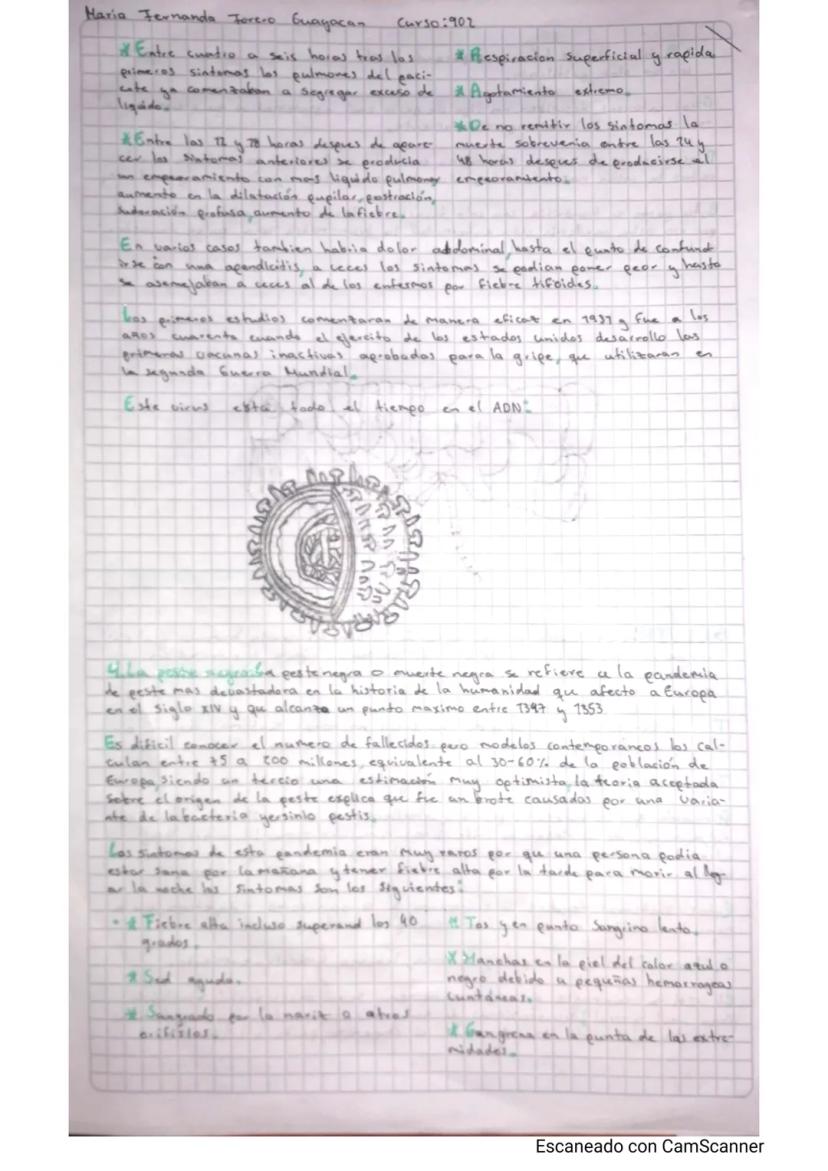 Maria Fernanda Forero Guayacan Curso:902
*Entre cuatro a seis horas tras los
primeros sintomas los pulmones del paci-
ente ya comenzaban a segregar exceso de
liquido.
*Entre las 12 y 78 horas despues de apare-
cer los sintomas anteriores se producia
un empeoramiento con mas liquido pulmonar
aumento en la dilatación pupilar, postración,
sudoración profusa, aumento de la fiebre.
* Respiracion superficial y rapida
* Agotamiento extremo.
*De no remitir los sintomas la
muerte sobrevenia entre las 24 y
48 horas despues de producirse el
empeoramiento.
En varios casos tambien habria dolor abdominal, hasta el punto de confund
irse con una apendicitis, a veces los sintomas se podian poner peor y hasta
se asemejaban a veces al de los enfermos por fiebre tifoides.
Los primeros estudios comenzaran de manera eficaz en 1937 y fue a los
años cuarenta cuando el ejercito de los estados unidos desarrollo las
primeras vacunas inactivas aprobadas para la gripe, que utilizaran en
la segunda Guerra Mundial.
Este virus esta todo el tiempo en el ADN:
4.La peste negra:La peste negra o muerte negra se refiere a la pandemia
de peste mas devastadora en la historia de la humanidad que afecto a Europa
en el siglo XIV y que alcanzo un punto maximo entre 1347 y 1353
Es dificil conocer el numero de fallecidos pero modelos contemporaneos los cal-
culan entre 75 a 200 millones, equivalente al 30-60% de la población de
Europa, siendo un tercio una estimación muy optimista, la teoria aceptada
sobre el origen de la peste explica que fue un brote causados por una varia-
nte de la bacteria yersinio pestis.
Los sintomas de esta pandemia eran muy raros por que una persona podia
estar sana por la mañana y tener fiebre alta por la tarde para morir al lleg-
ar la noche los sintomas son los siguientes:
* Fiebre alta incluso superand los 40
grados.
* Sed aguda.
* Sangrado por la nariz o otros
orifislos.
* Tos y en punto Sangrino lento.
* Manchas en la piel del color azul o
negro debido a pequeñas hemorrageas
cuntáneas.
* Gangrena en la punta de las extre-
midades.
Escaneado con CamScanner